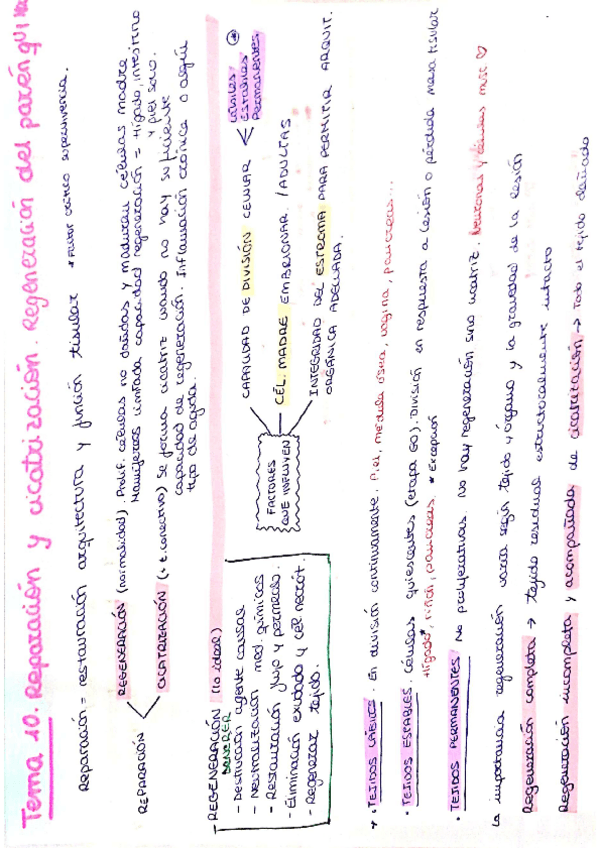 Tema 10. Reparación y cicatrización. Regeneración del parénqui
Reparación = restauración arquitectura y función tisular * Factor crítico supervivencia.
REPARACIÓN
REGENERACIÓN (normalidad). Prolif. células no dañadas y maduran células madre
Mamíferos limitada capacidad regeneración = Hígado, intestino
y piel solo.
CICATRIZACIÓN (t. conectivo) Se forma cicatriz cuando no hay suficiente
capacidad de regeneración. Inflamación crónica o algún
tipo de ayuda.
REGENERACIÓN (lo ideal)
- Destrucción agente causal
- Neutralización med. químicos
- Restauración flujo y permeab.
- Eliminación exudado y cél necrót.
- Regenerar tejido.
FACTORES
QUE INFLUYEN
CAPACIDAD DE DIVISIÓN CELULAR
Lábiles
Estables
Permanentes
CÉL. MADRE EMBRIONAR. / ADULTAS
INTEGRIDAD DEL ESTROMA PARA PERMITIR ARQUIT.
ORGÁNICA ADECUADA.
* · TEJIDOS LÁBILES. En división continuamente. Piel, médula ósea, vagina, páncreas...
· TEJIDOS ESTABLES. Células quiescentes (etapa G0). División en respuesta a lesión o pérdida masa tisular
Hígado*, riñón, páncreas. * Excepción
· TEJIDOS PERMANENTES No proliferativas. No hay regeneración sino cicatriz. Neuronas y células musc ♡
La importancia regeneración varía según tejido y órgano y la gravedad de la lesión
Regeneración completa → tejido residual estructuralmente intacto
Regeneración incompleta y acompañada de cicatrización → Todo el tejido dañado